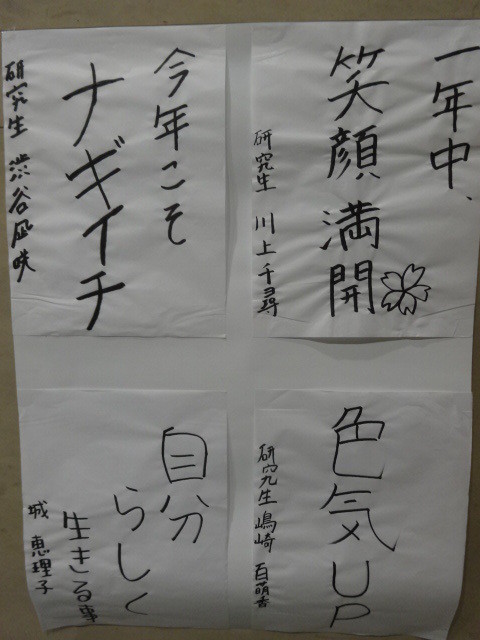 一年中、
笑顔満開
研究生 川上千尋
今年こそ
ナギイチ
研究生 渋谷凪咲
色気UP
研究生 嶋崎百萌香
自分
らしく
生きる事
城 恵理子